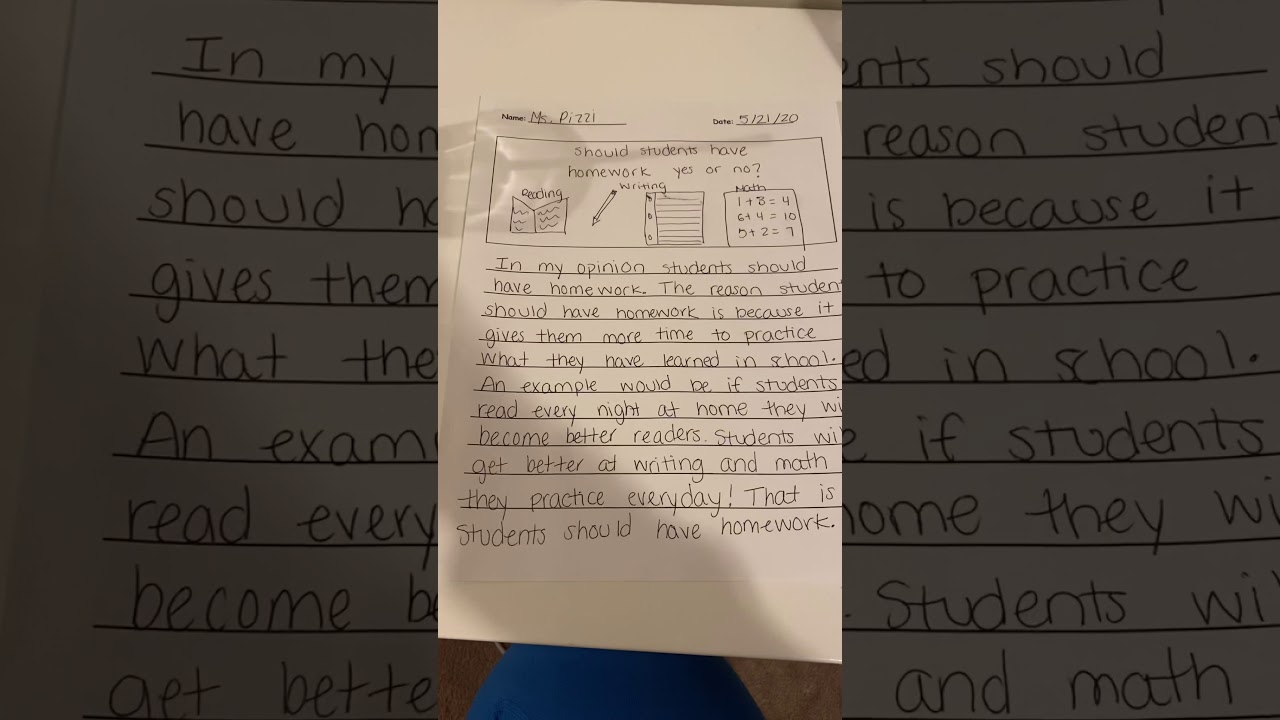 Name: Ms. Pizzi
Date: 5/21/20
should students have
homework yes or no?
Reading
Writing
Math
1+8=4
6+4=10
5+2=7
In my opinion students should
have homework. The reason studen
should have homework is because it
gives them more time to practice
what they have learned in school.
An example would be if students
read every night at home they wi
become better readers. Students wil
get better at writing and math
they practice everyday! That is
Students should have homework.